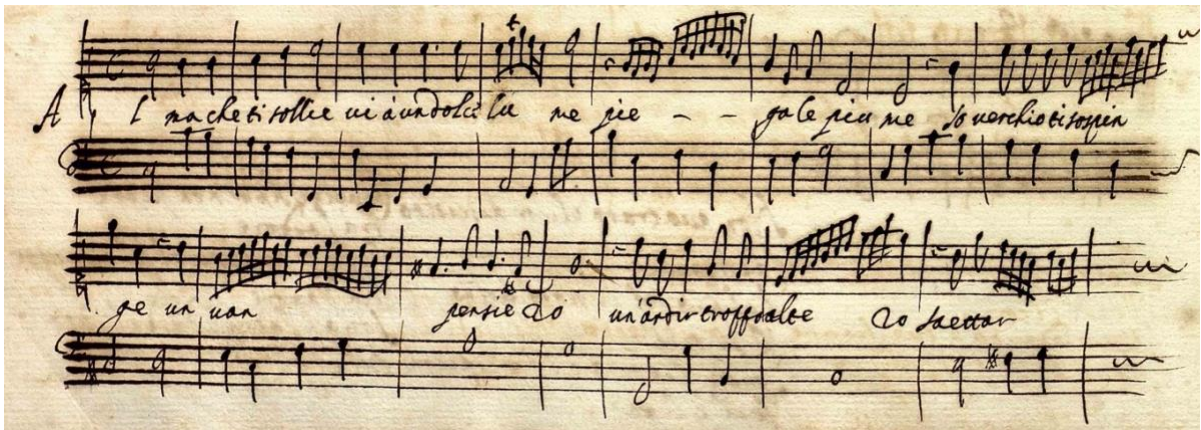 A l ma che ti sollie vi à un dolce lu me pie - - ga le piu me so uerchio ti sospin
ge un uan pensie ro un ardir tropp alte ro saettar